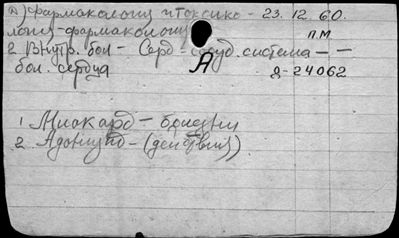 А) Фармакология и Токсико- 23.12.60.
логия-фармакология п.м.
2 Внутр. бол - Серд-сосуд. система -
бол. сердца А д-24062
1. Миокард - болезни
2. Адонизид - (действия)